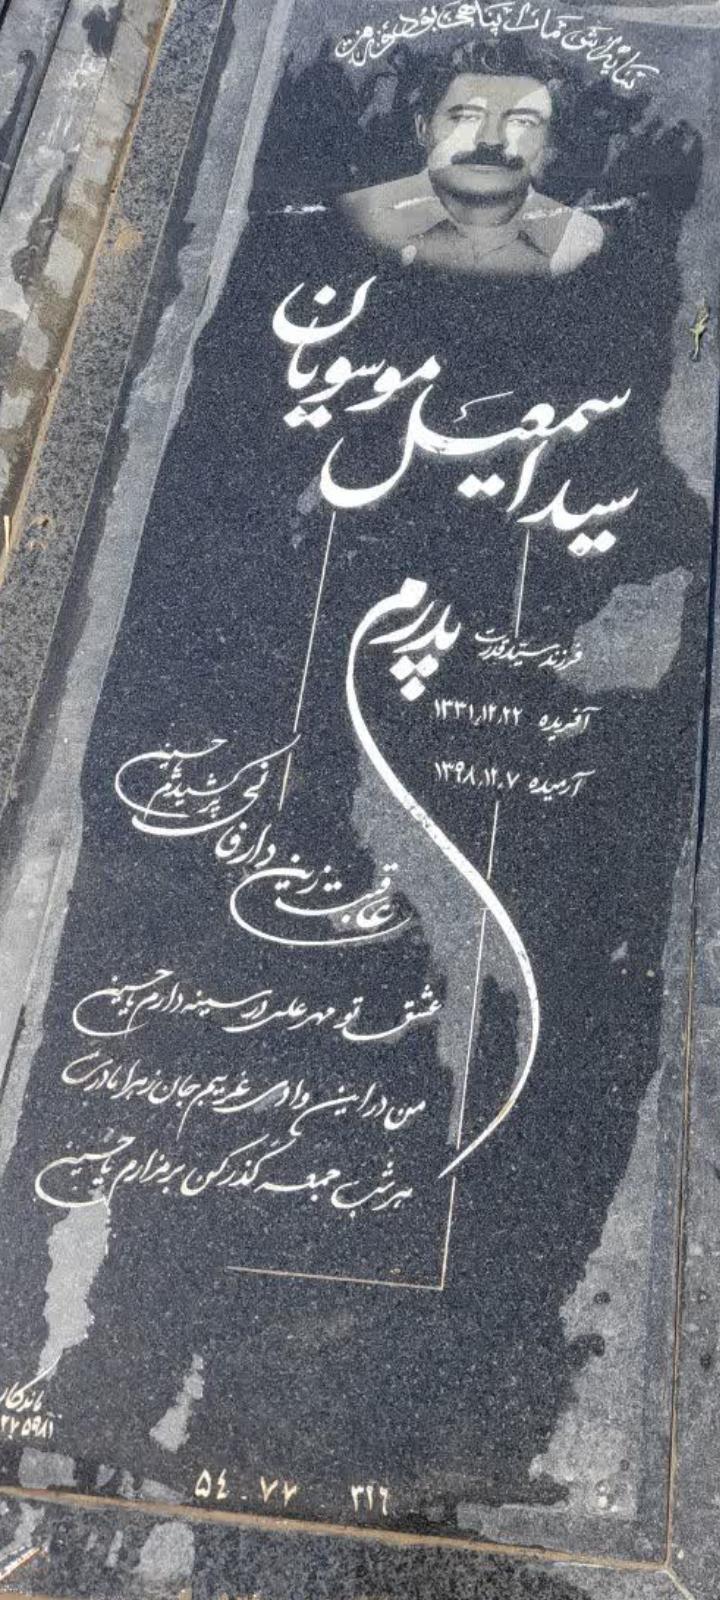 نیایش ما را پناهی بود
سید اسمعیل
موسویان
پدرم
فرزند سید قدرت
آفریده ۱۳۳۱٫۱۲٫۲۲
آرمیده ۱۳۹۸٫۱۲٫۷
عاقبت زین دار فانی پر کشیدم یا حسین
عشق تو مهر علی در سینه دارم یا حسین
من در این وادی غریبم جان زهرا مادرت
هر شب جمعه گذر کن بر مزارم یا حسین
ماندگار
۵۴ . ۷۷ ۳۲۶